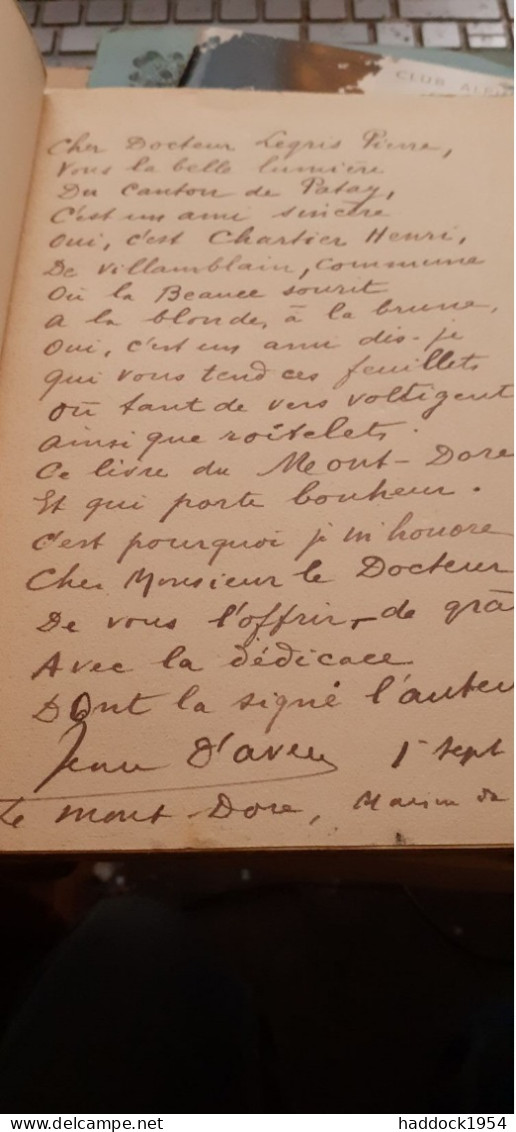 CLUB ALPIN
Cher Docteur Legris Pierre,
Vous la belle lumière
Du Canton de Patay,
C'est un ami sincère
Oui, c'est Chartier Henri,
De Villamblain, commune
Où la Beauce sourit
A la blonde, à la brune,
Oui, c'est un ami dis-je
Qui vous tend ces feuillets
Où tant de vers voltigent
Ainsi que roitelets.
Ce livre du Mont-Dore
Et qui porte bonheur.
C'est pourquoi je m'honore
Cher Monsieur le Docteur
De vous l'offrir, de grâ
Avec la dédicace
Dont la signé l'auteu
Jean D'aven 1er Sept
Le Mont-Dore,
haddock1954